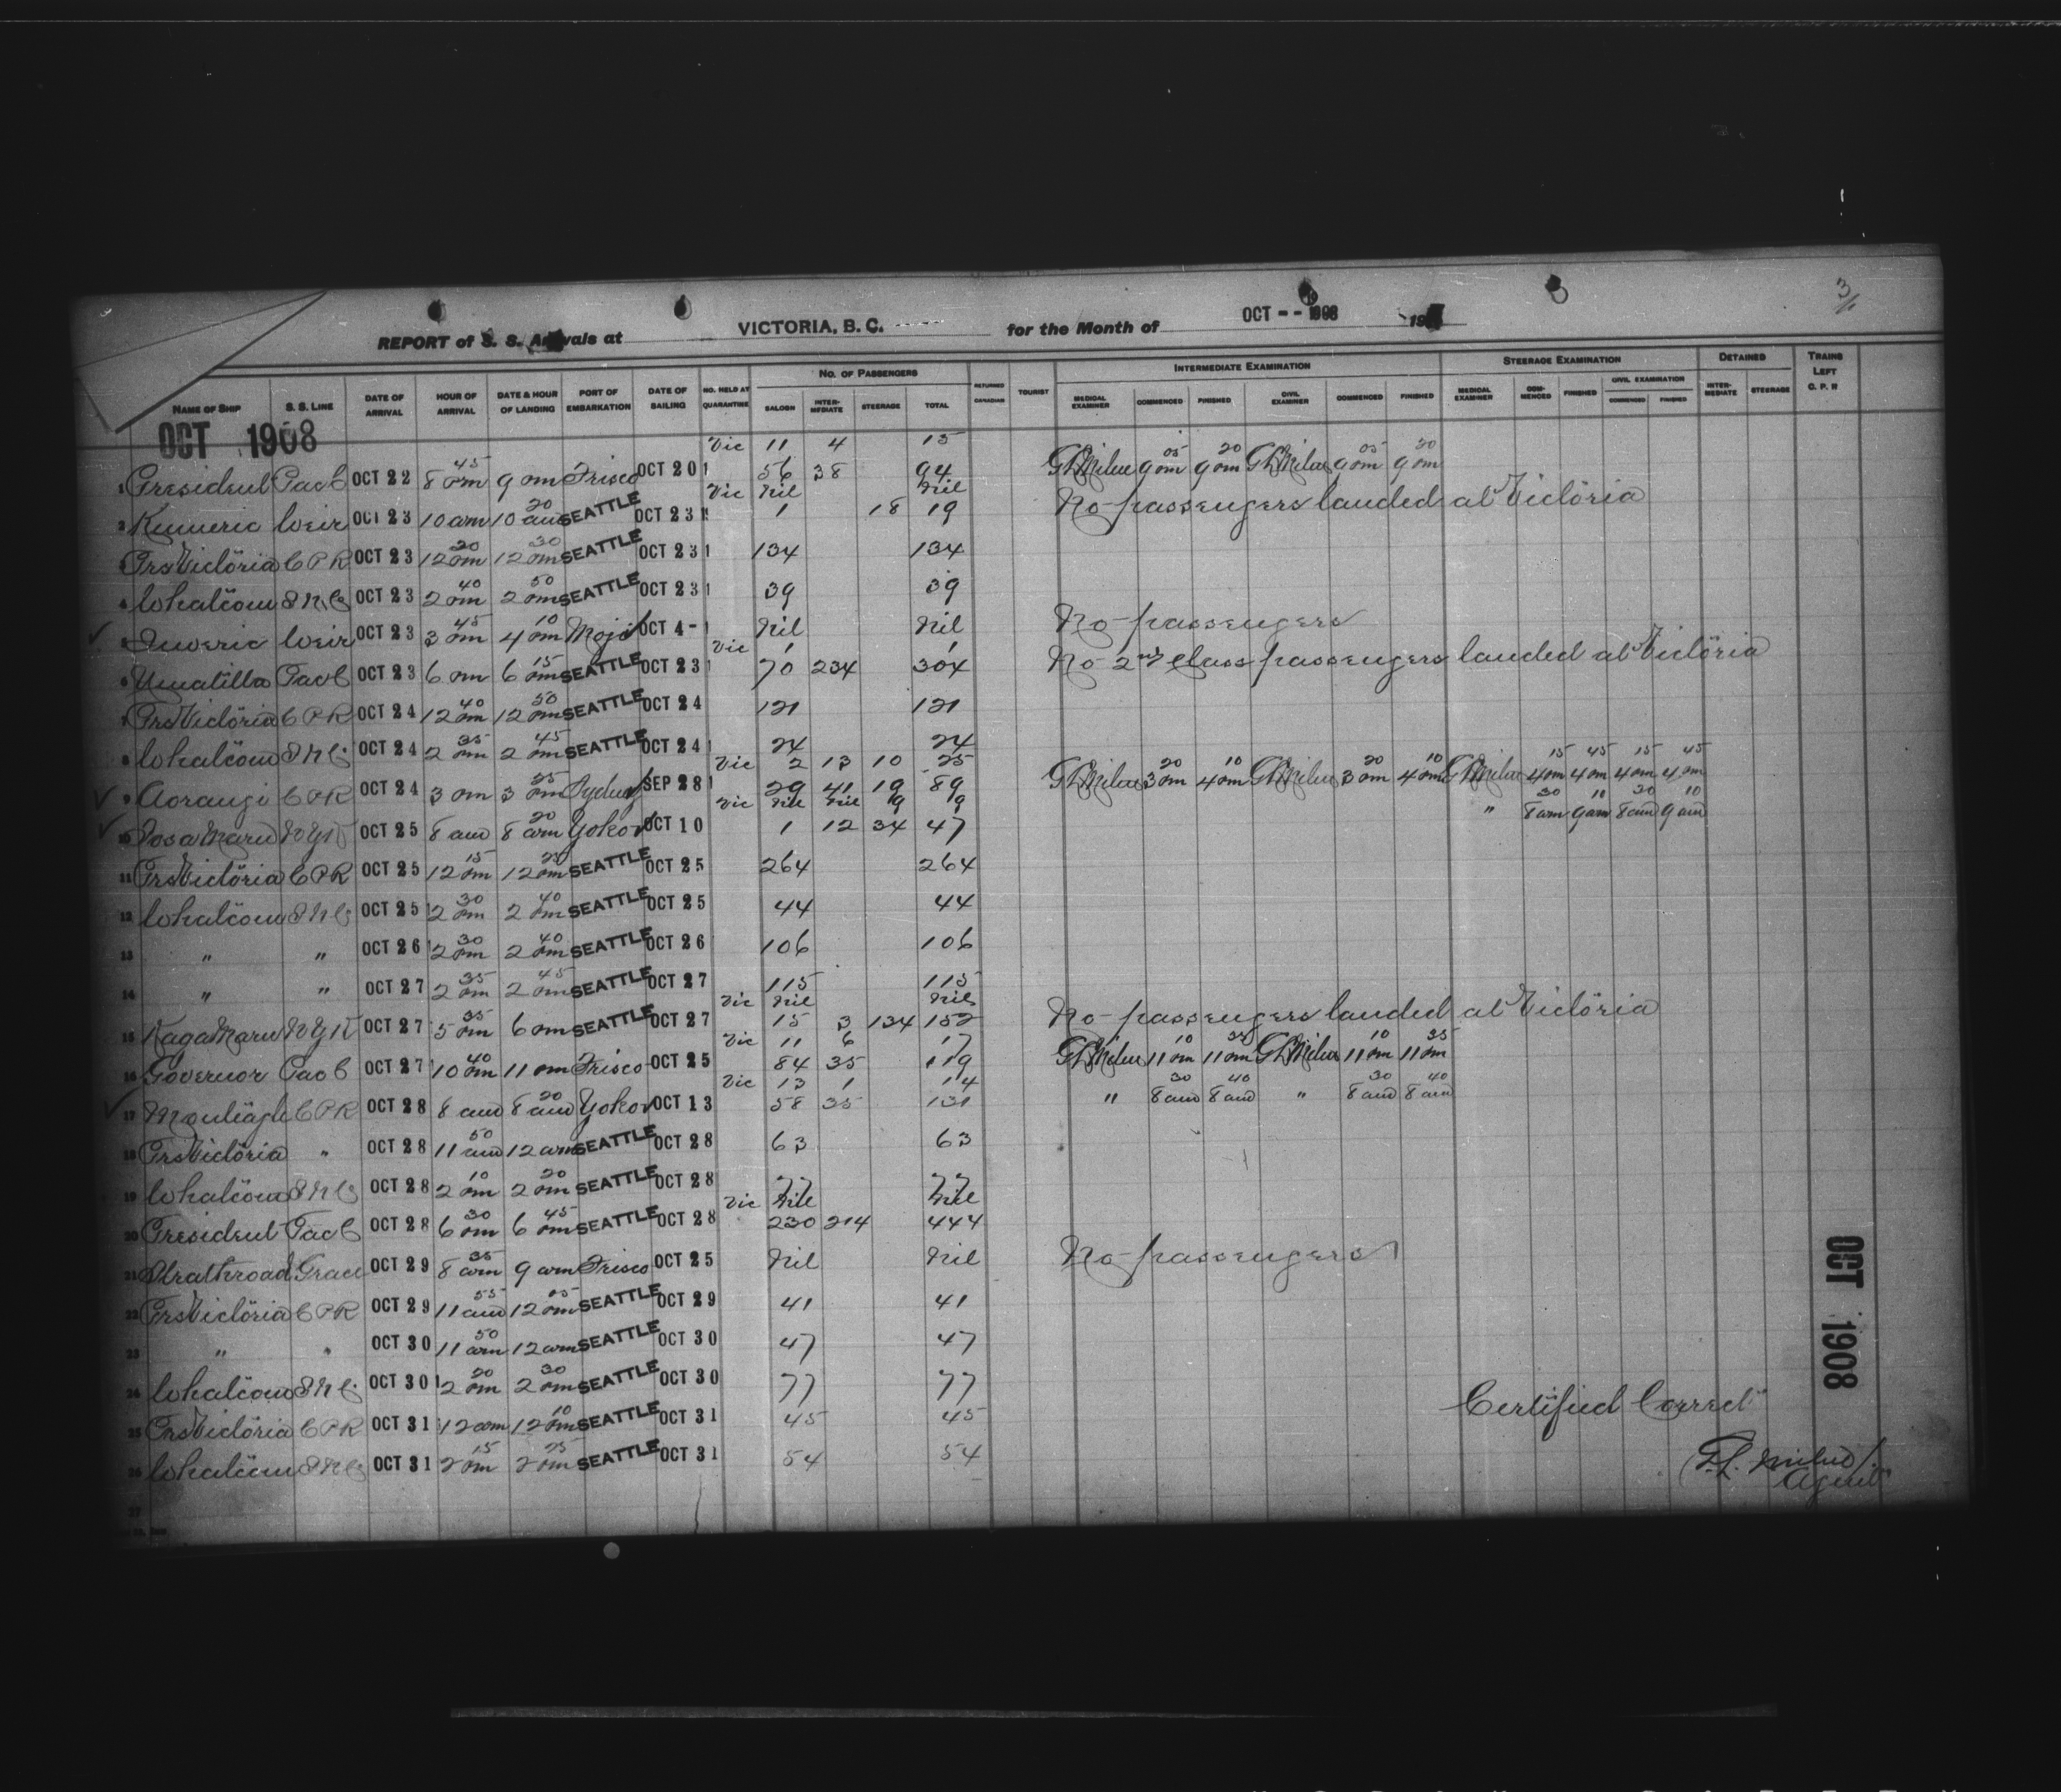 3/1
REPORT of S. S. Arrivals at VICTORIA, B. C. for the Month of OCT -- 1908 190
NAME OF SHIP S. S. LINE DATE OF ARRIVAL HOUR OF ARRIVAL DATE & HOUR OF LANDING PORT OF EMBARKATION DATE OF SAILING NO. HELD AT QUARANTINE NO. OF PASSENGERS SALOON INTERMEDIATE STEERAGE TOTAL RETURNED CANADIAN TOURIST INTERMEDIATE EXAMINATION MEDICAL EXAMINER COMMENCED FINISHED CIVIL EXAMINER COMMENCED FINISHED STEERAGE EXAMINATION MEDICAL EXAMINER COMMENCED FINISHED CIVIL EXAMINATION COMMENCED FINISHED DETAINED INTERMEDIATE STEERAGE TRAINS LEFT C. P. R
OCT 1908
Vic 11 4 15
1 President Pac C OCT 22 8 45 pm 9 pm Frisco OCT 20 56 38 94 G L Milne 9 05 pm 9 20 pm G L Milne 9 05 pm 9 20 pm
Vic Nil Nil
2 Kumeric Weir OCT 23 10 am 10 20 am SEATTLE OCT 23 1 18 19 No passengers landed at Victoria
3 Prs Victoria C P R OCT 23 12 20 pm 12 30 pm SEATTLE OCT 23 134 134
4 Whatcom S N Co OCT 23 2 40 pm 2 50 pm SEATTLE OCT 23 39 39
5 Suveric Weir OCT 23 3 45 pm 4 10 pm Moji OCT 4- Nil Nil No passengers
Vic 1 1
6 Umatilla Pac C OCT 23 6 pm 6 15 pm SEATTLE OCT 23 70 234 304 No 2nd class passengers landed at Victoria
7 Prs Victoria C P R OCT 24 12 40 pm 12 50 pm SEATTLE OCT 24 121 121
8 Whatcom S N Co OCT 24 2 35 pm 2 45 pm SEATTLE OCT 24 24 24
Vic 2 13 10 25
9 Aorangi C P R OCT 24 3 pm 3 25 pm Sydney SEP 28 29 41 19 89 G L Milne 3 20 pm 4 10 pm G L Milne 3 20 pm 4 10 pm G L Milne 4 15 pm 4 45 pm 4 15 pm 4 45 pm
Vic Nil Nil 19 19
10 Tosa Maru N Y K OCT 25 8 am 8 20 am Yoko OCT 10 1 12 34 47 " 8 30 am 9 10 am 8 30 am 9 10 am
11 Prs Victoria C P R OCT 25 12 15 pm 12 25 pm SEATTLE OCT 25 264 264
12 Whatcom S N Co OCT 25 2 30 pm 2 40 pm SEATTLE OCT 25 44 44
13 " " OCT 26 2 30 pm 2 40 pm SEATTLE OCT 26 106 106
14 " " OCT 27 2 35 pm 2 45 pm SEATTLE OCT 27 115 115
Vic Nil Nil
15 Kaga Maru N Y K OCT 27 5 35 pm 6 pm SEATTLE OCT 27 15 3 134 152 No passengers landed at Victoria
Vic 11 6 17
16 Governor Pac C OCT 27 10 40 pm 11 pm Frisco OCT 25 84 35 119 G L Milne 11 10 pm 11 35 pm G L Milne 11 10 pm 11 35 pm
Vic 13 1 14
17 Monteagle C P R OCT 28 8 am 8 20 am Yoko OCT 13 58 35 131 " 8 30 am 8 40 am " 8 30 am 8 40 am
18 Prs Victoria " OCT 28 11 50 am 12 am SEATTLE OCT 28 63 63
19 Whatcom S N Co OCT 28 2 10 pm 2 20 pm SEATTLE OCT 28 77 77
Vic Nil Nil
20 President Pac C OCT 28 6 30 pm 6 45 pm SEATTLE OCT 28 230 214 444
21 Strathroad Grace OCT 29 8 35 am 9 am Frisco OCT 25 Nil Nil No passengers
22 Prs Victoria C P R OCT 29 11 55 am 12 05 pm SEATTLE OCT 29 41 41
23 " " OCT 30 11 50 am 12 am SEATTLE OCT 30 47 47
24 Whatcom S N Co OCT 30 2 20 pm 2 30 pm SEATTLE OCT 30 77 77
25 Prs Victoria C P R OCT 31 12 am 12 10 pm SEATTLE OCT 31 45 45
26 Whatcom S N Co OCT 31 2 15 pm 2 25 pm SEATTLE OCT 31 54 54
27
OCT 1908
Certified Correct
G. L. Milne
Agent